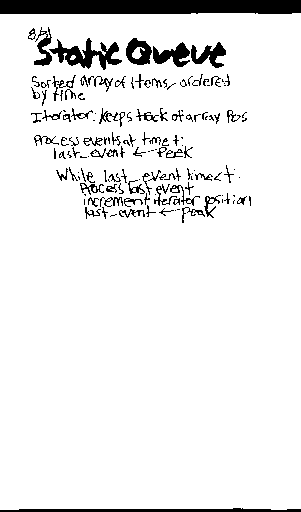 8/21
Static Queue
Sorted array of items, ordered
by time
Iterator: keeps track of array pos
Process events at time t:
last_event ← Peek
While last_event time < t:
Process last event
increment iterator position
last_event ← peak